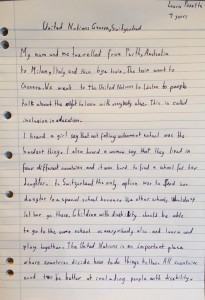 Laura Panetta
9 years
United Nations Geneva, Switzerland
My mum and me travelled from Perth, Australia
to Milan, Italy and then by a train. The train went to
Geneva. We went to the United Nations to listen to people
talk about the right to learn with everybody else. This is called
inclusion in education.
I heard a girl say that not falling outcome at school was the
hardest thing. I also heard a woman say that they lived in
four different countries and it was hard to find a school for her
daughter. In Switzerland the only option was to send her
daughter to a special school because the other schools wouldn't
let her go there. Children with disability should be able
to go to the same school as everybody else and learn and
play together. The United Nations is an important place
where countries decide how to do things better. All countries
need to be better at including people with disability.